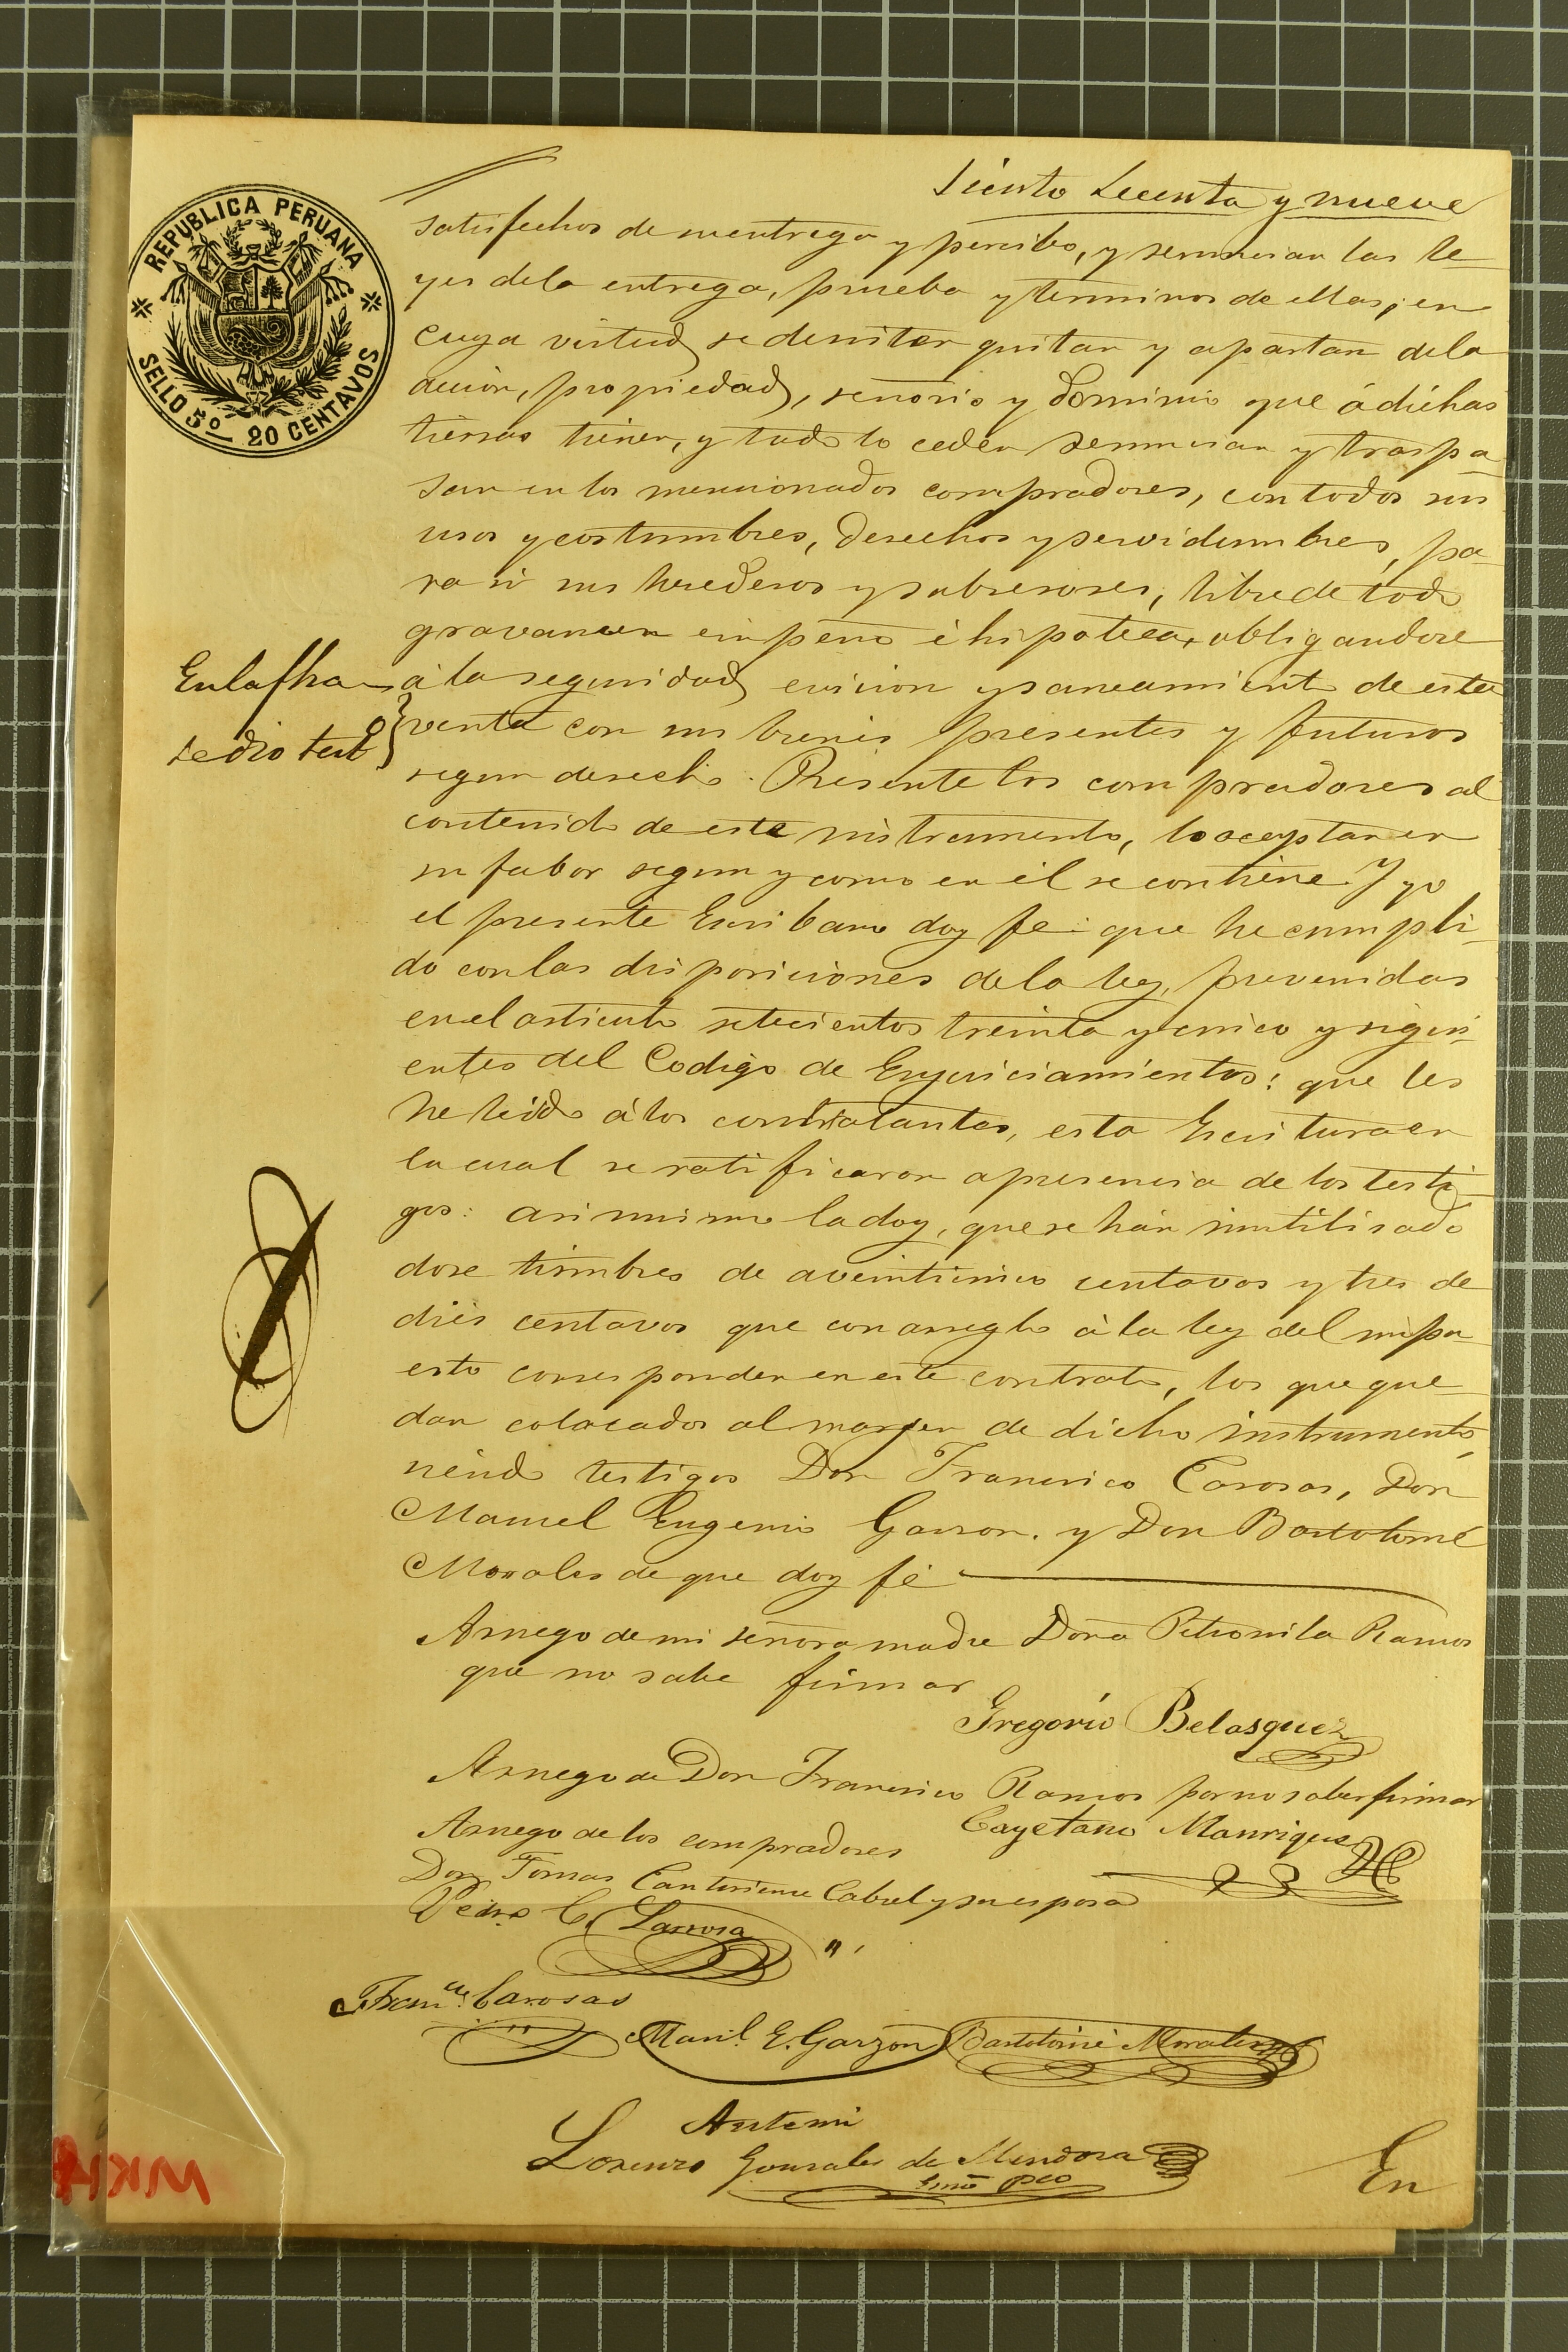 Siento Secenta y nueve
REPUBLICA PERUANA
SELLO 5º 20 CENTAVOS
satisfechos de su entrega y percibo, y renuncian las le-
yes dela entrega, prueba y terminos de ellas; en
cuya virtud se desisten quitan y apartan dela
accion, propiedad, señorio y dominio que á dichas
tierras tienen, y todo lo ceden renuncian y traspa-
san en los mencionados compradores, con todos sus
usos y costumbres, derechos y servidumbres, pa-
ra si sus herederos y subsesores, libre de todo
gravamen empeño é hipoteca, obligandose
á la seguridad evicion y saneamiento de esta
venta con sus bienes presentes y futuros
segun derecho. Presente los compradores al
contenido de este instrumento, lo aceptan en
su fabor segun y como en él se contiene. Y yo
el presente Escribano doy fe: que he cumpli-
do con las disposiciones dela ley, prevenidas
en el articulo setecientos treinta y cinco y sigui-
entes del Codigo de Enjuiciamientos: que les
he leido á los contratantes, esta Escritura en
la cual se ratificaron a presencia de los testi-
gos: asi mismo la doy, que se hán inutilisado
dose timbres de a veinticinco centavos y tres de
diés centavos que con arreglo á la ley del impu-
esto corresponden en este contrato, los que que-
dan colocados al margen de dicho instrumento,
siendo testigos Don Francisco Carosas, Don
Manuel Eugenio Garson. y Don Bartolomé
Morales de que doy fé
En la fha
se dio testº
Arruego de mi señora madre Doña Petronila Ramos
que no sabe firmar
Gregorio Belasquez
Arruego de Don Francisco Ramos por no saber firmar
Cayetano Manrique
Arruego de los compradores
Don Tomas Cabrel y su esposa
Pedro C. Larrosa
Franco. Carosas
Manl. E. Garzon Bartolomé Morales
Antemi
Lorenzo Gonsales de Mendosa
Esno pco
En